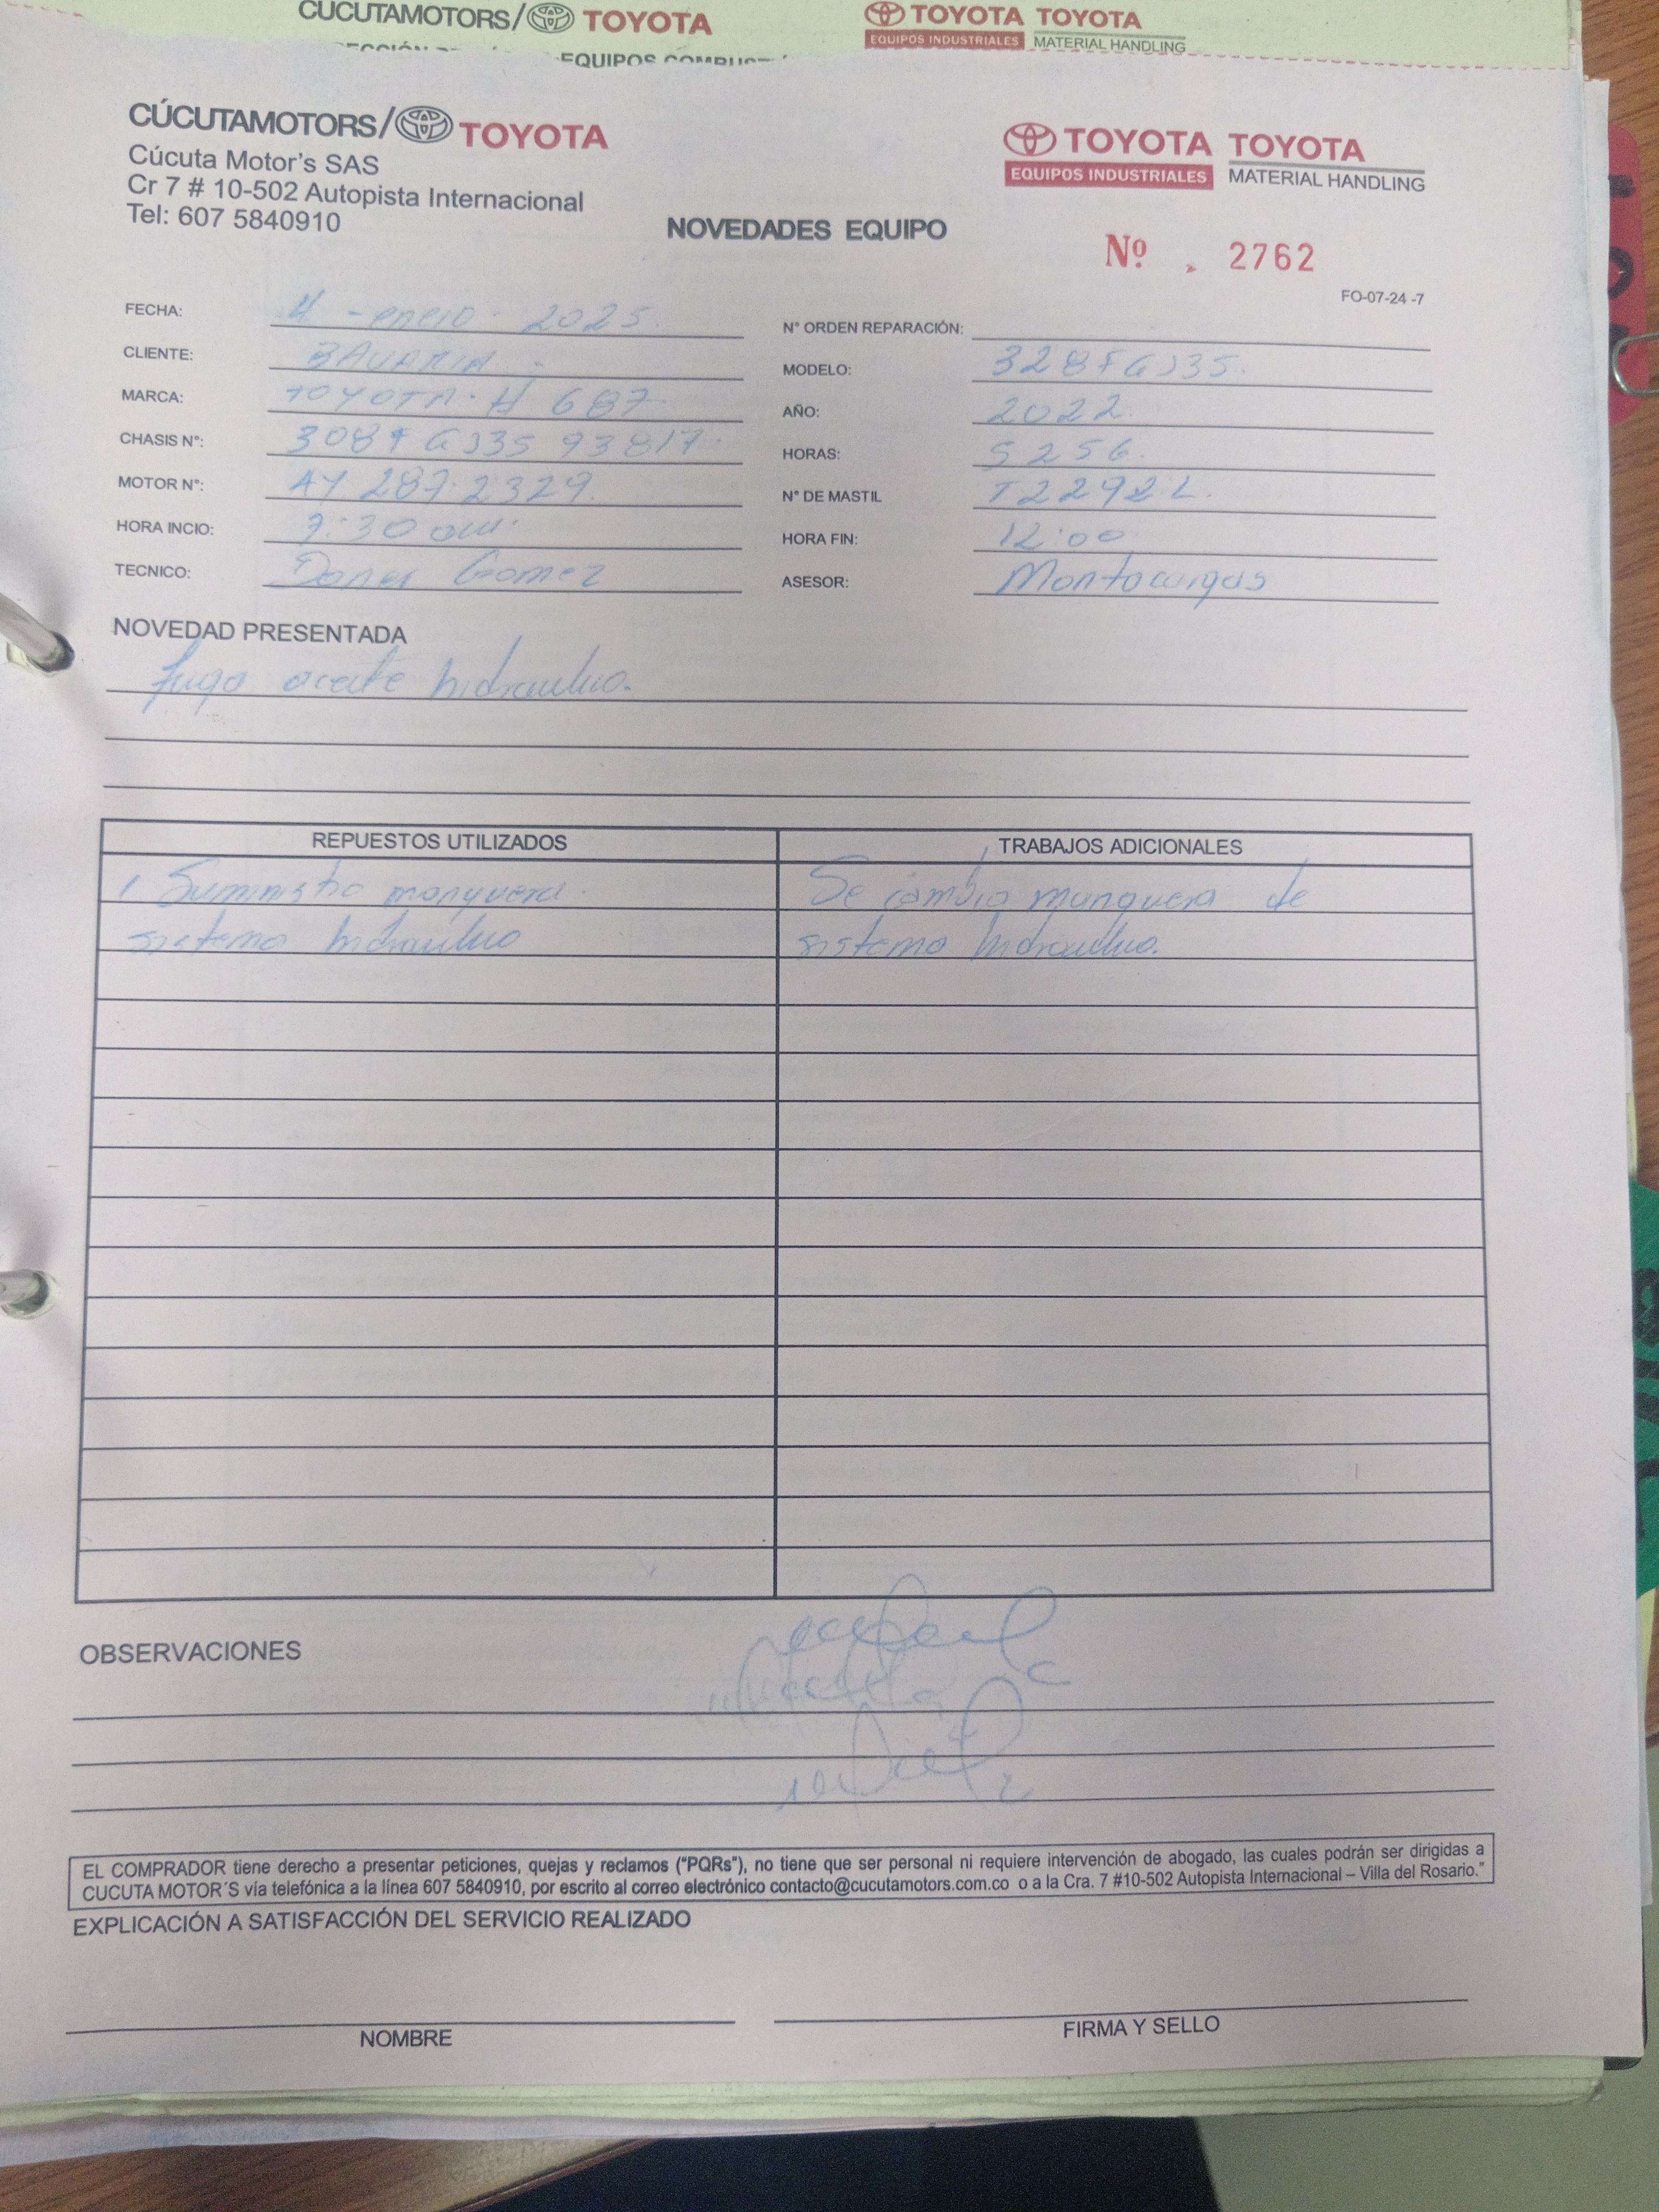 CÚCUTAMOTORS/ TOYOTA
TOYOTA TOYOTA
EQUIPOS INDUSTRIALES MATERIAL HANDLING
EQUIPOS
CÚCUTAMOTORS/ TOYOTA
Cúcuta Motor's SAS
Cr 7 # 10-502 Autopista Internacional
Tel: 607 5840910
TOYOTA TOYOTA
EQUIPOS INDUSTRIALES MATERIAL HANDLING
NOVEDADES EQUIPO
Nº . 2762
FO-07-24 -7
FECHA: -enero- 2025.
N° ORDEN REPARACIÓN:
CLIENTE: BAVARIA -
MODELO: 328FGJ35.
MARCA: TOYOTA. H 687
AÑO: 2022.
CHASIS N°: 308FGJ35 93817.
HORAS: 5256.
MOTOR N°: 4Y 287.2329.
N° DE MASTIL T2292L.
HORA INCIO: 7:30 am.
HORA FIN: 12:00
TECNICO: Gomez
ASESOR: Montacargas
NOVEDAD PRESENTADA
fuga aceite hidraulico.
REPUESTOS UTILIZADOS
TRABAJOS ADICIONALES
1 Suministro manguera.
Se cambio manguera de
sistema hidraulico
sistema hidraulico.
OBSERVACIONES
EL COMPRADOR tiene derecho a presentar peticiones, quejas y reclamos ("PQRs"), no tiene que ser personal ni requiere intervención de abogado, las cuales podrán ser dirigidas a
CUCUTA MOTOR´S vía telefónica a la línea 607 5840910, por escrito al correo electrónico contacto@cucutamotors.com.co o a la Cra. 7 #10-502 Autopista Internacional – Villa del Rosario."
EXPLICACIÓN A SATISFACCIÓN DEL SERVICIO REALIZADO
NOMBRE
FIRMA Y SELLO